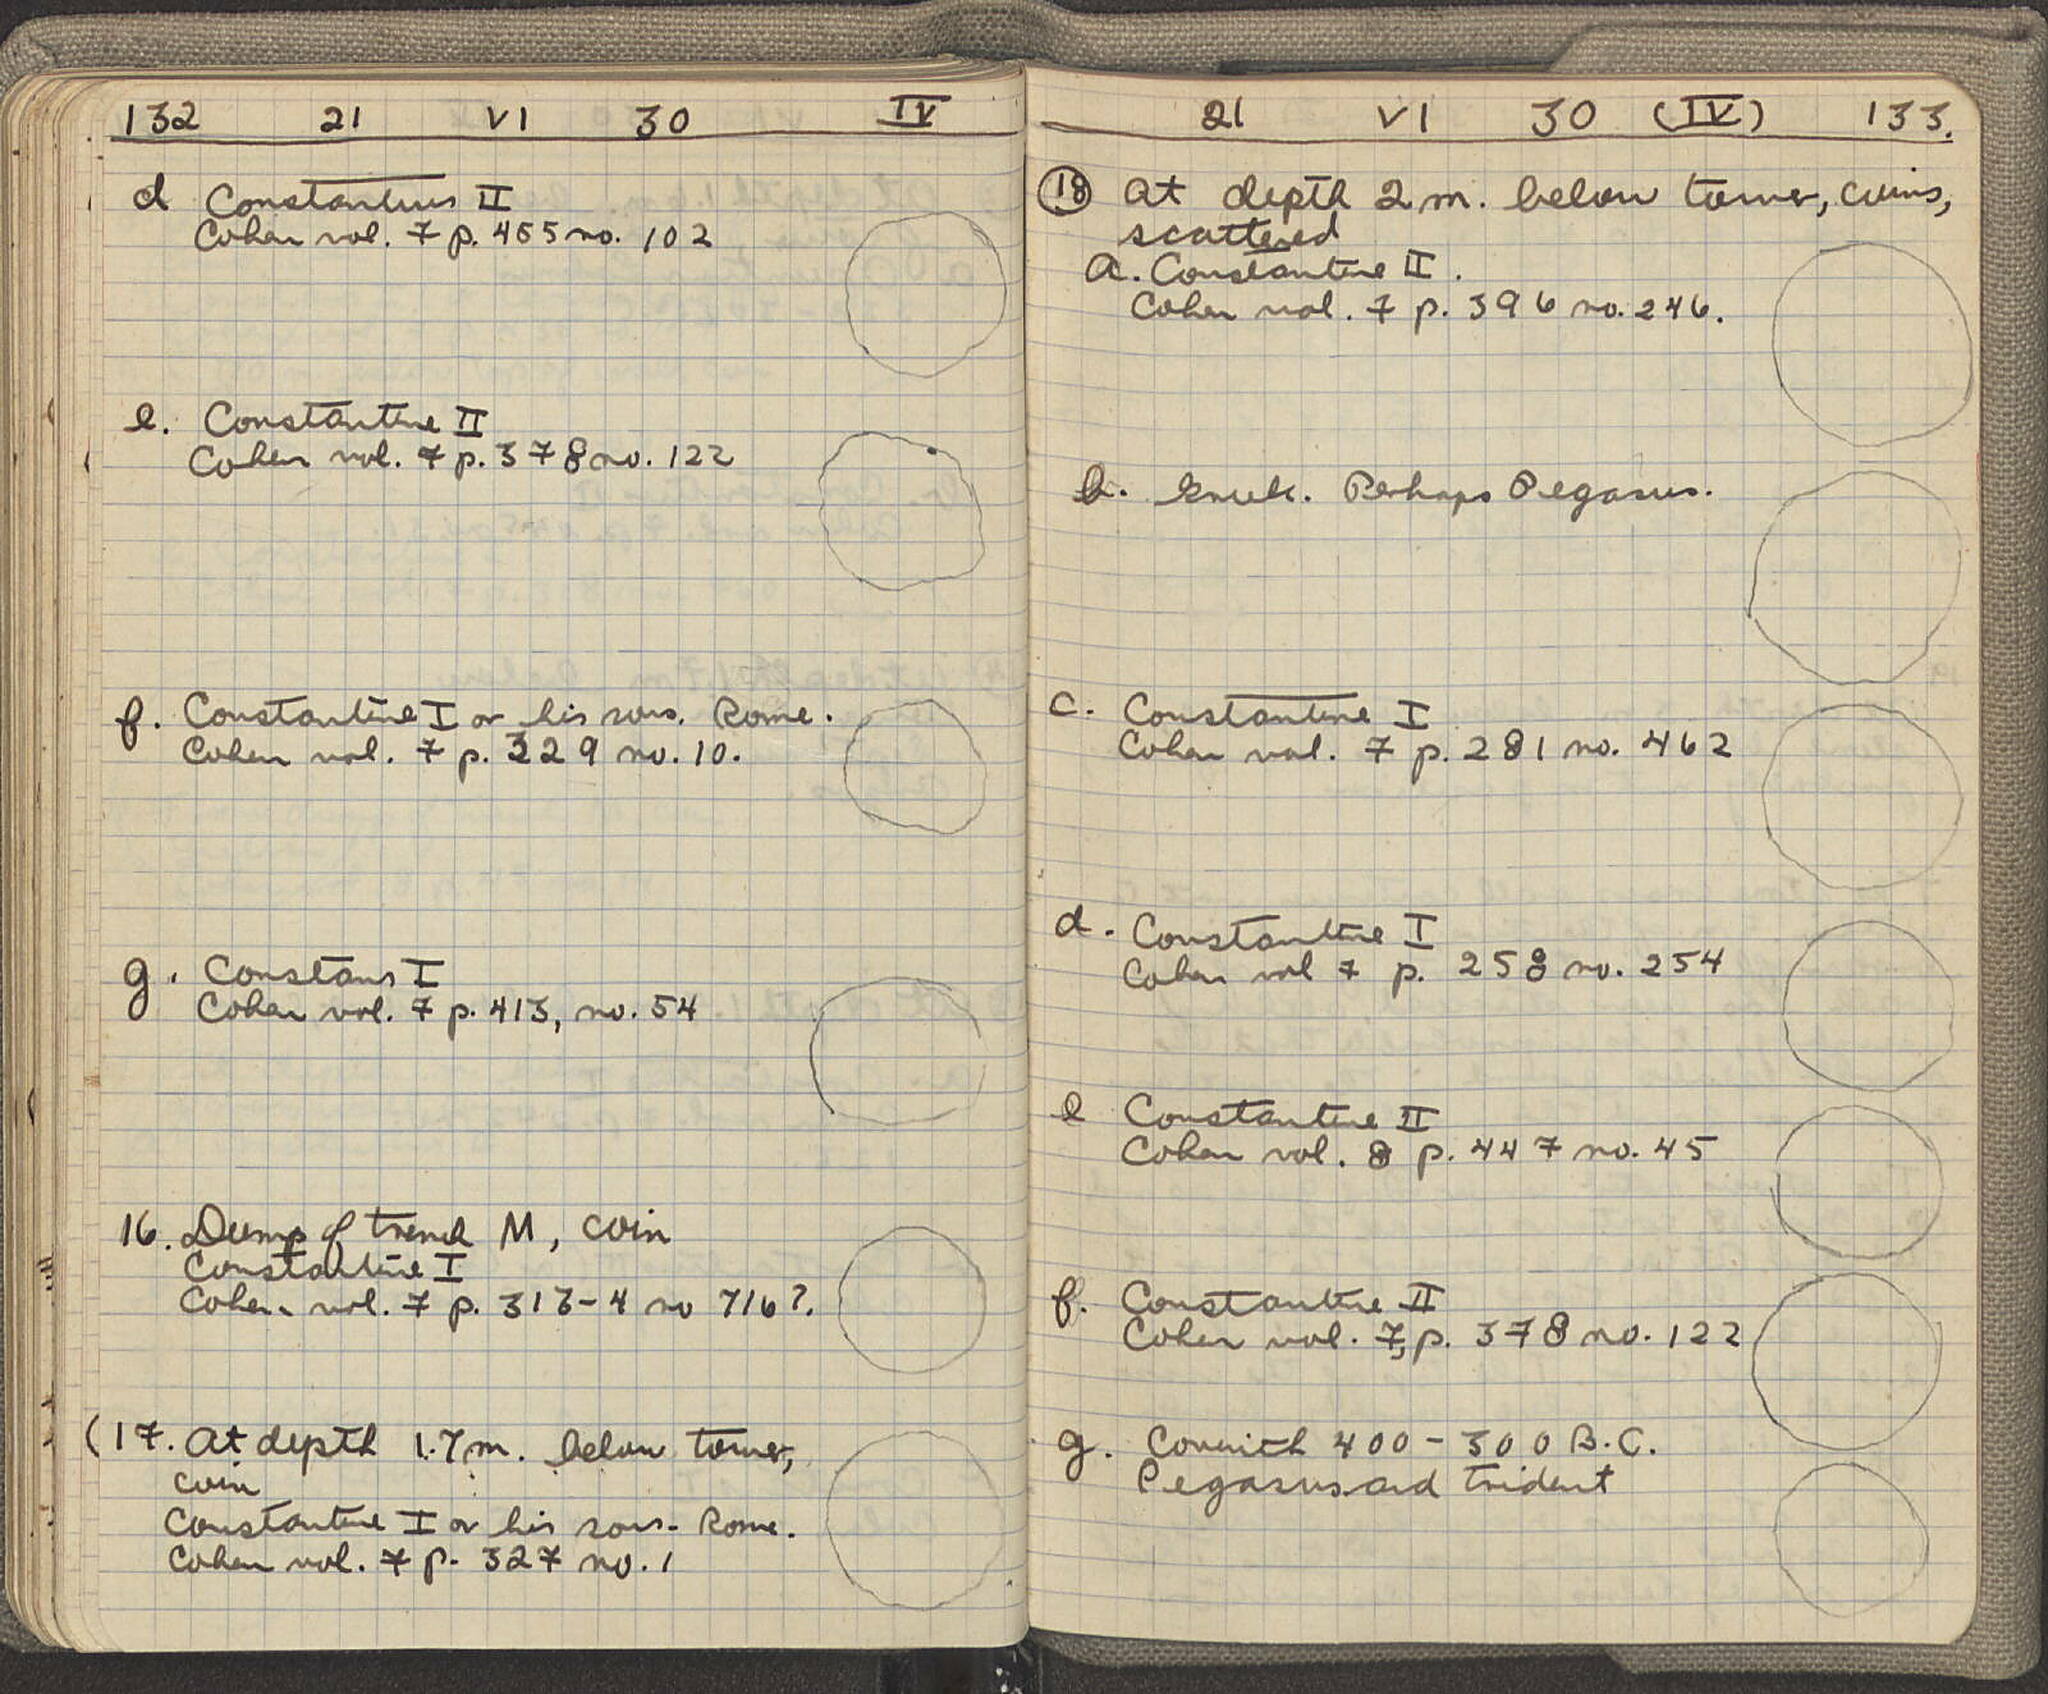 132 21 VI 30 IV
d Constantius II
Cohen vol. 7 p. 455 no. 102
e. Constantine II
Cohen vol. 7 p. 378 no. 122
f. Constantine I or his sons. Rome.
Cohen vol. 7 p. 329 no. 10.
g. Constans I
Cohen vol. 7 p. 413, no. 54
16. Dump of trench M, coin
Constantine I
Cohen vol. 7 p. 313-4 no 716?.
(17. At depth 1.7 m. below tower,
coin
Constantine I or his sons - Rome.
Cohen vol. 7 p. 327 no. 1
21 VI 30 (IV) 133.
18 At depth 2 m. below tower, coins,
scattered
a. Constantine II.
Cohen vol. 7 p. 396 no. 246.
b. Greek. Perhaps Pegasus.
c. Constantine I
Cohen vol. 7 p. 281 no. 462
d. Constantine I
Cohen vol 7 p. 258 no. 254
e Constantine II
Cohen vol. 8 p. 447 no. 45
f. Constantine II
Cohen vol. 7, p. 378 no. 122
g. Corinth 400-300 B.C.
Pegasus and trident